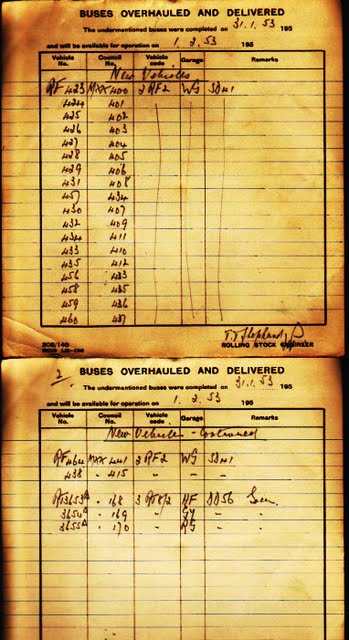 BUSES OVERHAULED AND DELIVERED
The undermentioned buses were completed on 31.1.53 195
and will be available for operation on 1.2.53 195
Vehicle No. Council No. Vehicle code Garage Remarks
New Vehicles
RF 423 MXX 400 2RF2 WG SD41
424 401
425 402
426 403
427 404
428 405
429 406
431 408
457 434
430 407
432 409
434 411
433 410
435 412
456 433
458 435
459 436
460 437
ROLLING STOCK ENGINEER
2 BUSES OVERHAULED AND DELIVERED
The undermentioned buses were completed on 31.1.53 195
and will be available for operation on 1.2.53 195
Vehicle No. Council No. Vehicle code Garage Remarks
New Vehicles - Continued
RF 464 MXX 441 2RF2 WG SD41
438 - 415 - - -
- 168 HF
3654 - 169 - GY -
3655 - 170 - RG -